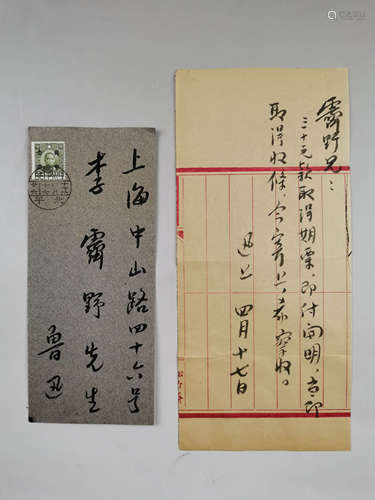 上海中山路四十六号
李霁野先生
鲁迅
北平
霁野兄：
三十元款取得期票，即付开明，立即
取得收条，今寄上，希察收。
迅上 四月十七日